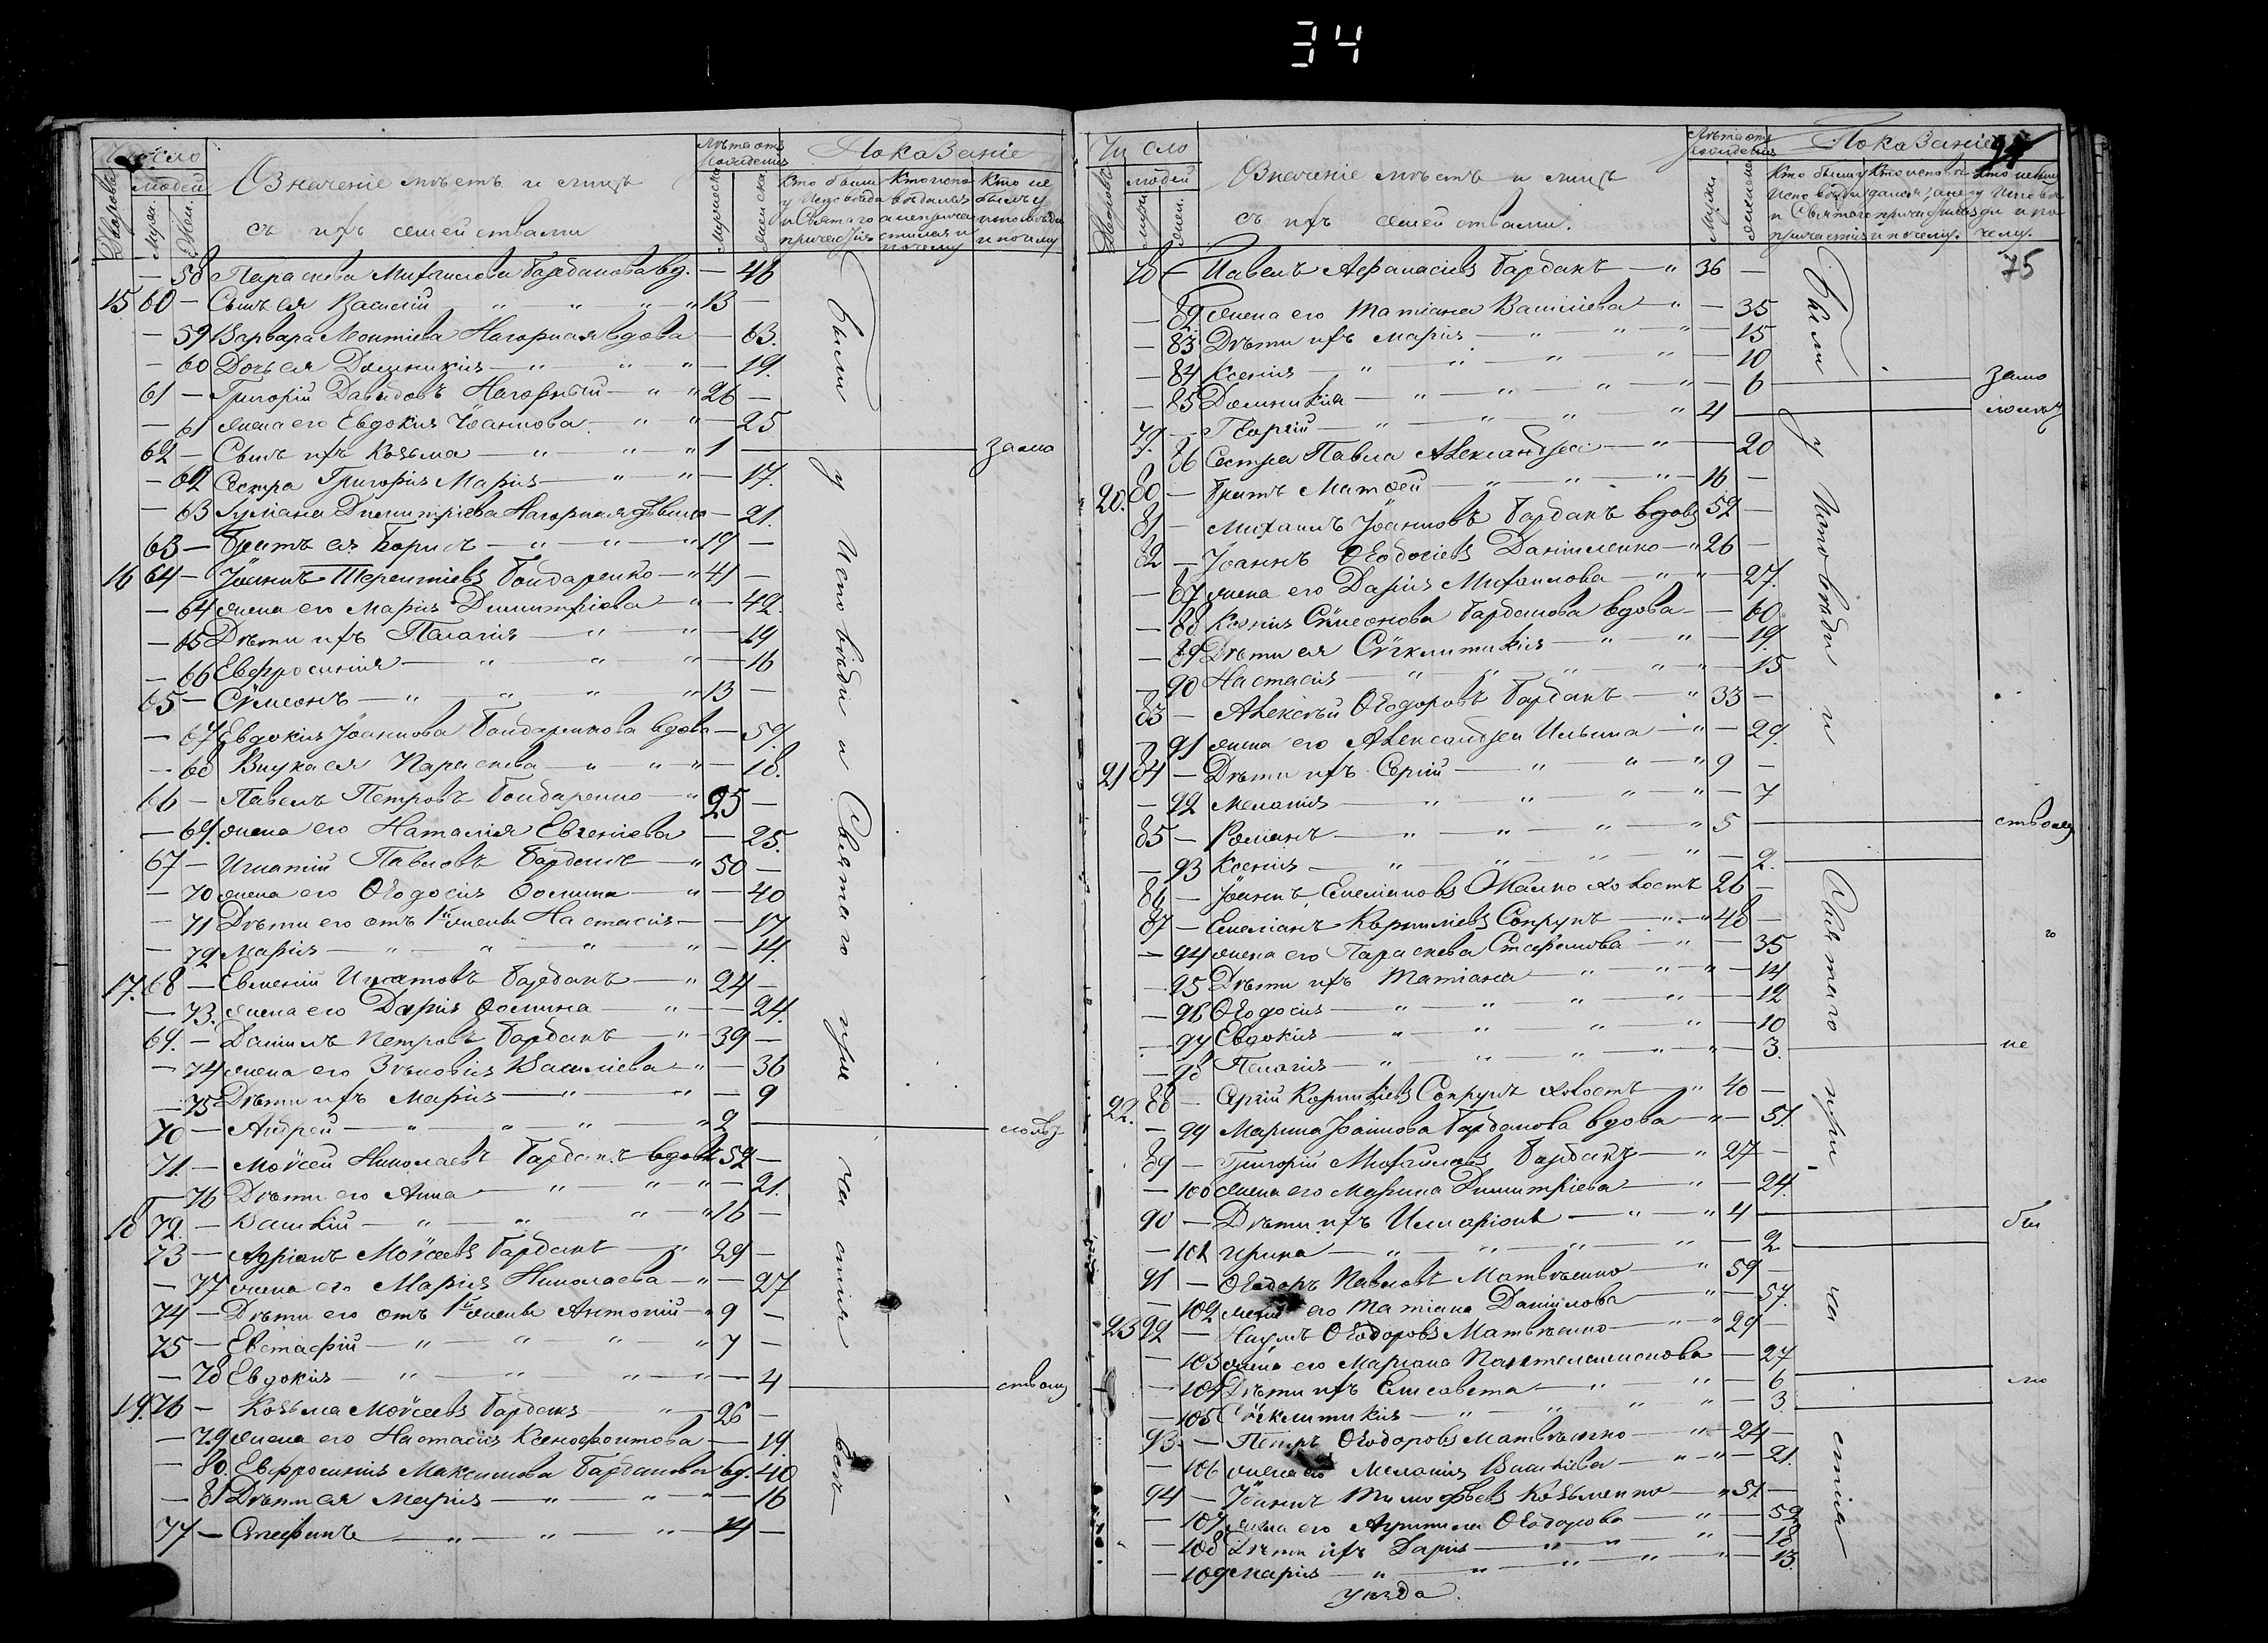 34
Число
Дворовъ
людей
Мужи.
Жен.
Означеніе мѣстъ и лицъ
съ ихъ семействами
Лѣта отъ рожденія
Мужеска
Женска
Показаніе
Кто были у Исповѣди и Святаго причастія
Кто испо вѣдался а не прича стился и почему
Кто не былъ у исповѣди и почему
— 58 Параскева Михаилова Барбанова вд. — 46
15 60 — Сынъ ея Василій — 13 —
— 59 Варвара Леонтіева Нагорная вдова — 63.
— 60 Дочь ея Домникія — 19.
61 — Григорій Давидовъ Нагорный — 26 —
— 61 жена его Евдокія Іоаннова — 25
62 — Сынъ ихъ Козьма — 1 — за мо
— 62 Сестра Григорія Марія — 17.
— 63 Іуліана Димитріева Нагорная дѣвица — 21.
63 — Братъ ея Борисъ — 19 —
16 64 — Іоаннъ Терентіевъ Бондаренко — 41 —
— 64 жена его Марія Димитріева — 42.
— 65 Дѣти ихъ Пелагія — 19
— 66 Евфросинія — 16
65 — Сѵмеонъ — 13 —
— 67 Евдокія Іоаннова Бондаренкова вдова — 59.
— 68 Внука ея Параскева — 18.
66 — Павелъ Петровъ Бондаренко — 25 —
— 69. жена его Наталія Евгеніева — 25.
67 — Игнатій Павловъ Барбанъ — 50 —
— 70 жена его Ѳеодосія Ѳомина — 40
— 71 Дѣти его отъ 1й жены Настасія — 17
— 72 Марія — 14.
17. 68 — Евменій Игнатовъ Барбанъ — 24 —
— 73. жена его Дарія Ѳомина — 24.
69. — Даніилъ Петровъ Барбанъ — 39 —
— 74 жена его Зѣновія Василіева — 36
— 75 Дѣти ихъ Марія — 9
70 — Андрей — 2 — лолѣт
71. — Моѵсей Николаевъ Барбанъ вдовъ 52 —
— 76 Дѣти его Анна — 21.
18 72. — Василій — 16 —
73 — Адріанъ Моѵсеевъ Барбанъ — 29 —
— 77 жена его Марія Николаева — 27
74 — Дѣти его отъ 1й жены Антоній — 9 —
75 — Евстафій — 7 —
— 78 Евдокія — 4 — ствомъ
19. 76 — Козьма Моѵсеевъ Барбанъ — 26 —
— 79 жена его Настасія Ксенофонтова — 19.
— 80. Евфросинія Максимова Барбанова вд. 40
— 81 Дѣти ея Марія — 16
77 — Стефанъ — 14 —
Были у Исповѣди и Святаго при ча стія всѣ
Число
Дворовъ
людей
Мужи
Жен.
Означеніе мѣстъ и лицъ
съ ихъ семействами.
Лѣта отъ рожденія
Мужи
Женска
Показаніе
75
78 — Павелъ Аѳанасіевъ Барбанъ — 36 —
— 82 жена его Татіана Василіева — 35
— 83 Дѣти ихъ Марія — 15
— 84 Ксенія — 10
— 85 Домникія — 6 — за мо
79. — Георгій — 4 — лолѣт
— 86 Сестра Павла Александра — 20
20. 80 — Братъ Матѳей — 16 —
81 — Михаилъ Іоанновъ Барбанъ вдовъ 52 —
82 — Іоаннъ Ѳеодосіевъ Даниленко — 26 —
— 87 жена его Дарія Михаилова — 27.
— 88 Ксенія Сѵмеонова Барбанова вдова — 60
— 89 Дѣти ея Сѵнклитикія — 19.
— 90 Настасія — 15
83 — Алексѣй Ѳеодоровъ Барбанъ — 33 —
— 91 жена его Александра Ильина — 29.
21 84 — Дѣти ихъ Сергій — 9 —
— 92 Меланія — 7
85 — Романъ — 5 — ствомъ
— 93 Ксенія — 2.
86 — Іоаннъ Емеліановъ холостъ 26 —
87 — Емеліанъ Корниліевъ Сопрунъ — 48 —
— 94 жена его Параскева Стефанова — 35
— 95 Дѣти ихъ Татіана — 14
— 96 Ѳеодосія — 12
— 97 Евдокія — 10
— 98 Пелагія — 3. — не
22. 88 — Сергій Корниліевъ Сопрунъ холостъ — 40 —
— 99 Марина Іоаннова Барбанова вдова — 51.
89 — Григорій Михайловъ Барбанъ — 27 —
— 100 жена его Марина Димитріева — 24.
90 — Дѣти ихъ Иларіонъ — 4 — бы
— 101 Ирина — 2
91 — Ѳеодоръ Павловъ Матвѣенко — 59 —
— 102 жена его Татіана Даніилова — 57.
23 92 — Наумъ Ѳеодоровъ Матвѣенко — 29 —
— 103 жена его Маріана Пантелеимонова — 27
— 104 Дѣти ихъ Елисавета — 6 — ло
— 105 Сѵнклитикія — 3.
93. — Петръ Ѳеодоровъ Матвѣенко — 24 —
— 106 жена его Меланія Василіева — 21.
94 — Іоаннъ Тимоѳеевъ Козьменко — 51. —
— 107 жена его Агрипина Ѳеодорова — 52
— 108 Дѣти ихъ Дарія — 18
— 109 Марія — 13.
Были у Исповѣди и Святаго при ча стія